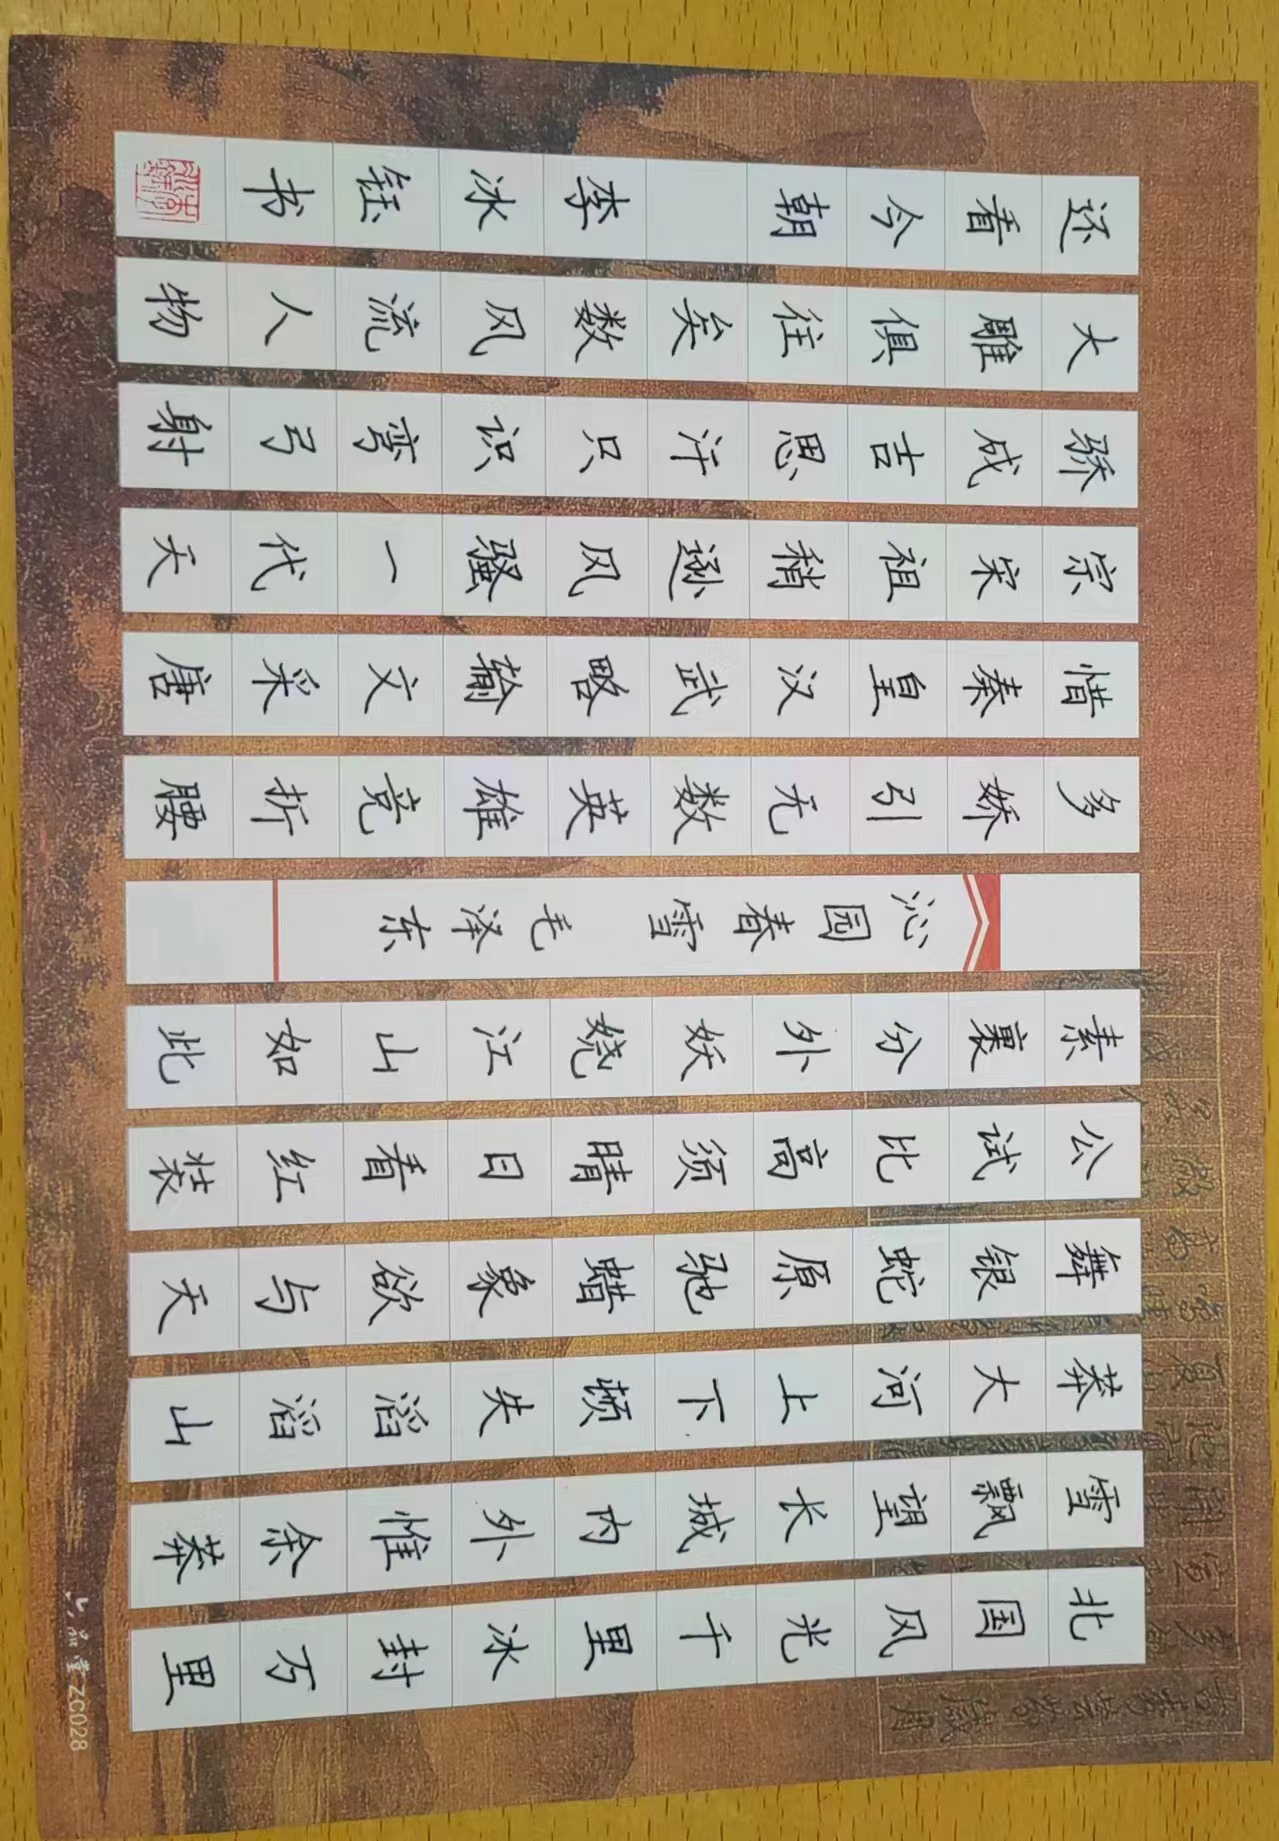 北国风光千里冰封万里
雪飘望长城内外惟余莽
莽大河上下顿失滔滔山
舞银蛇原驰蜡象欲与天
公试比高须晴日看红装
素裹分外妖娆江山如此
沁园春雪 毛泽东
多娇引无数英雄竞折腰
惜秦皇汉武略输文采唐
宗宋祖稍逊风骚一代天
骄成吉思汗只识弯弓射
大雕俱往矣数风流人物
还看今朝 李冰钰书
六品堂 ZC028